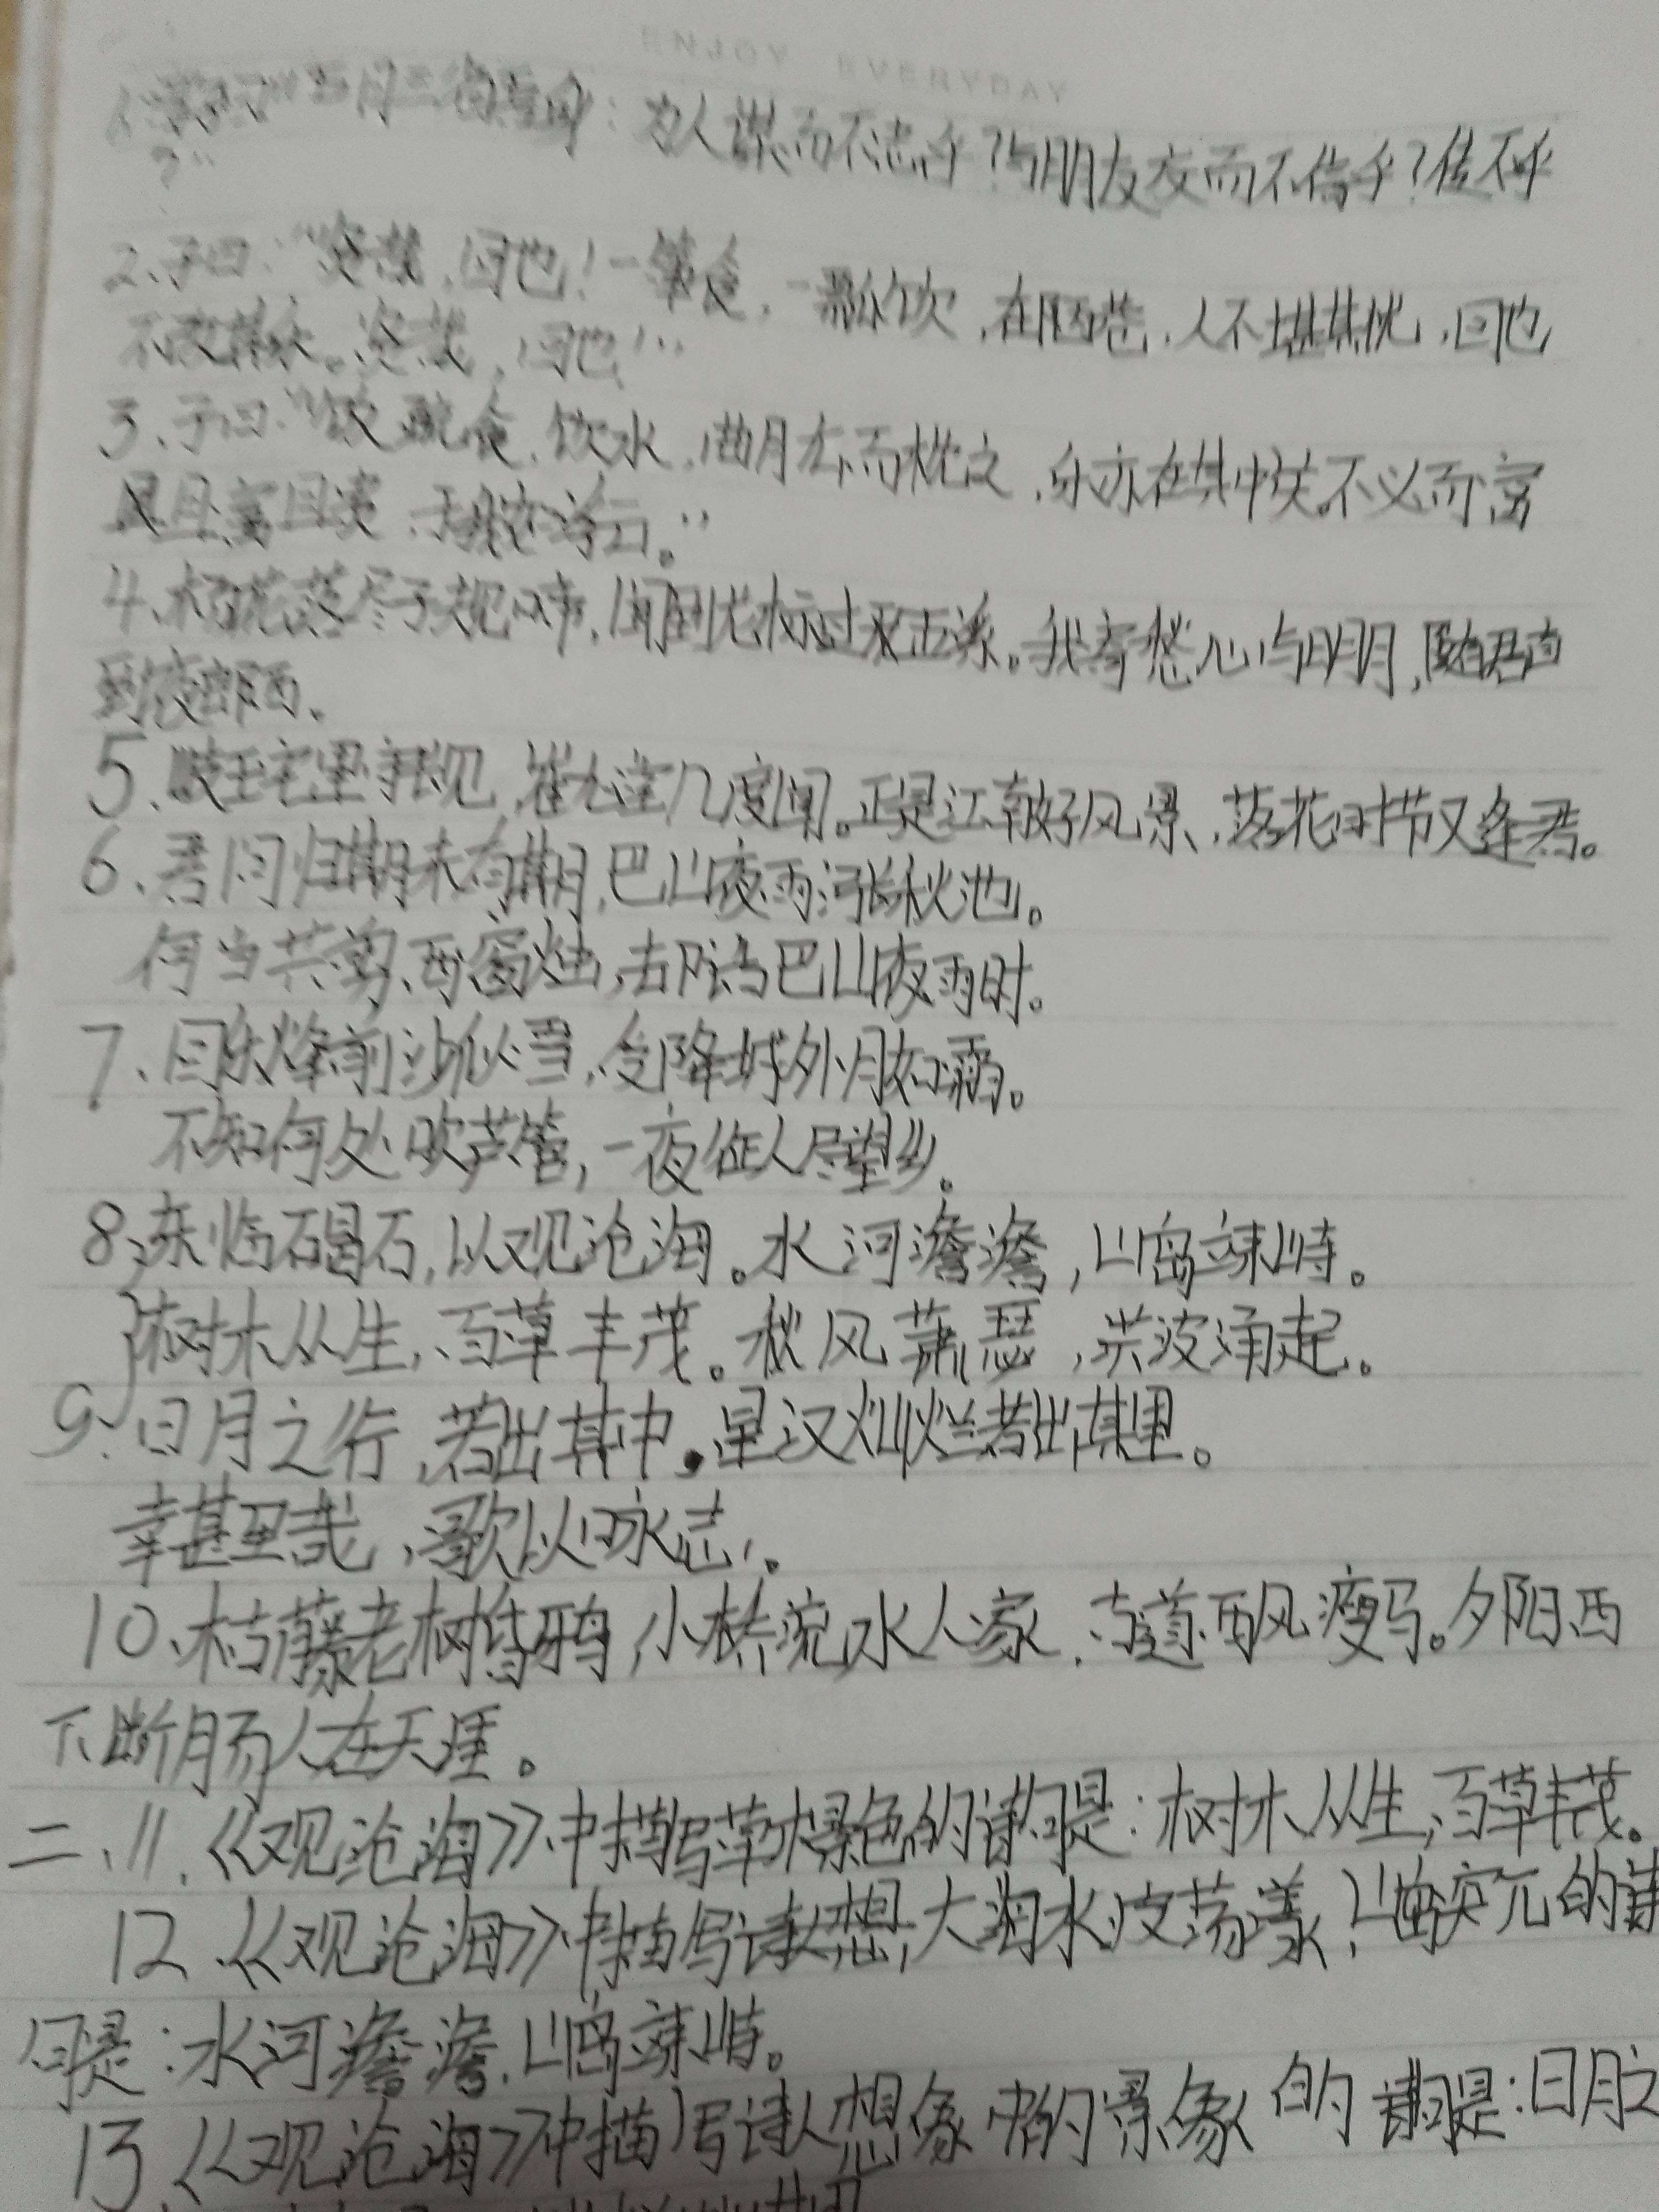 ENJOY EVERYDAY
吾日三省吾身：为人谋而不忠乎？与朋友交而不信乎？传不乎
？”
2、子曰：“贤哉，回也！一箪食，一瓢饮，在陋巷，人不堪其忧，回也
不改其乐。贤哉，回也！”
3、子曰：“饭疏食，饮水，曲肱而枕之，乐亦在其中矣。不义而富
且贵，于我如浮云。”
4、杨花落尽子规啼，闻道龙标过五溪。我寄愁心与明月，随君直
到夜郎西。
5、岐王宅里寻常见，崔九堂几度闻。正是江南好风景，落花时节又逢君。
6、君问归期未有期，巴山夜雨涨秋池。
何当共剪西窗烛，却话巴山夜雨时。
7、回乐烽前沙似雪，受降城外月如霜。
不知何处吹芦管，一夜征人尽望乡。
8、东临碣石，以观沧海。水河澹澹，山岛竦峙。
树木从生，百草丰茂。秋风萧瑟，洪波涌起。
9、日月之行，若出其中。星汉灿烂若出其里。
幸甚至哉，歌以咏志。
10、枯藤老树昏鸦，小桥流水人家，古道西风瘦马。夕阳西
下，断肠人在天涯。
二、11.《观沧海》中描写草木景色的诗句是：树木从生，百草丰茂。
12.《观沧海》中描写诗人想，大海水波荡漾，山岛突兀的诗
句是：水河澹澹，山岛竦峙。
13.《观沧海》中描写诗人想象中的景象的诗句是：日月之